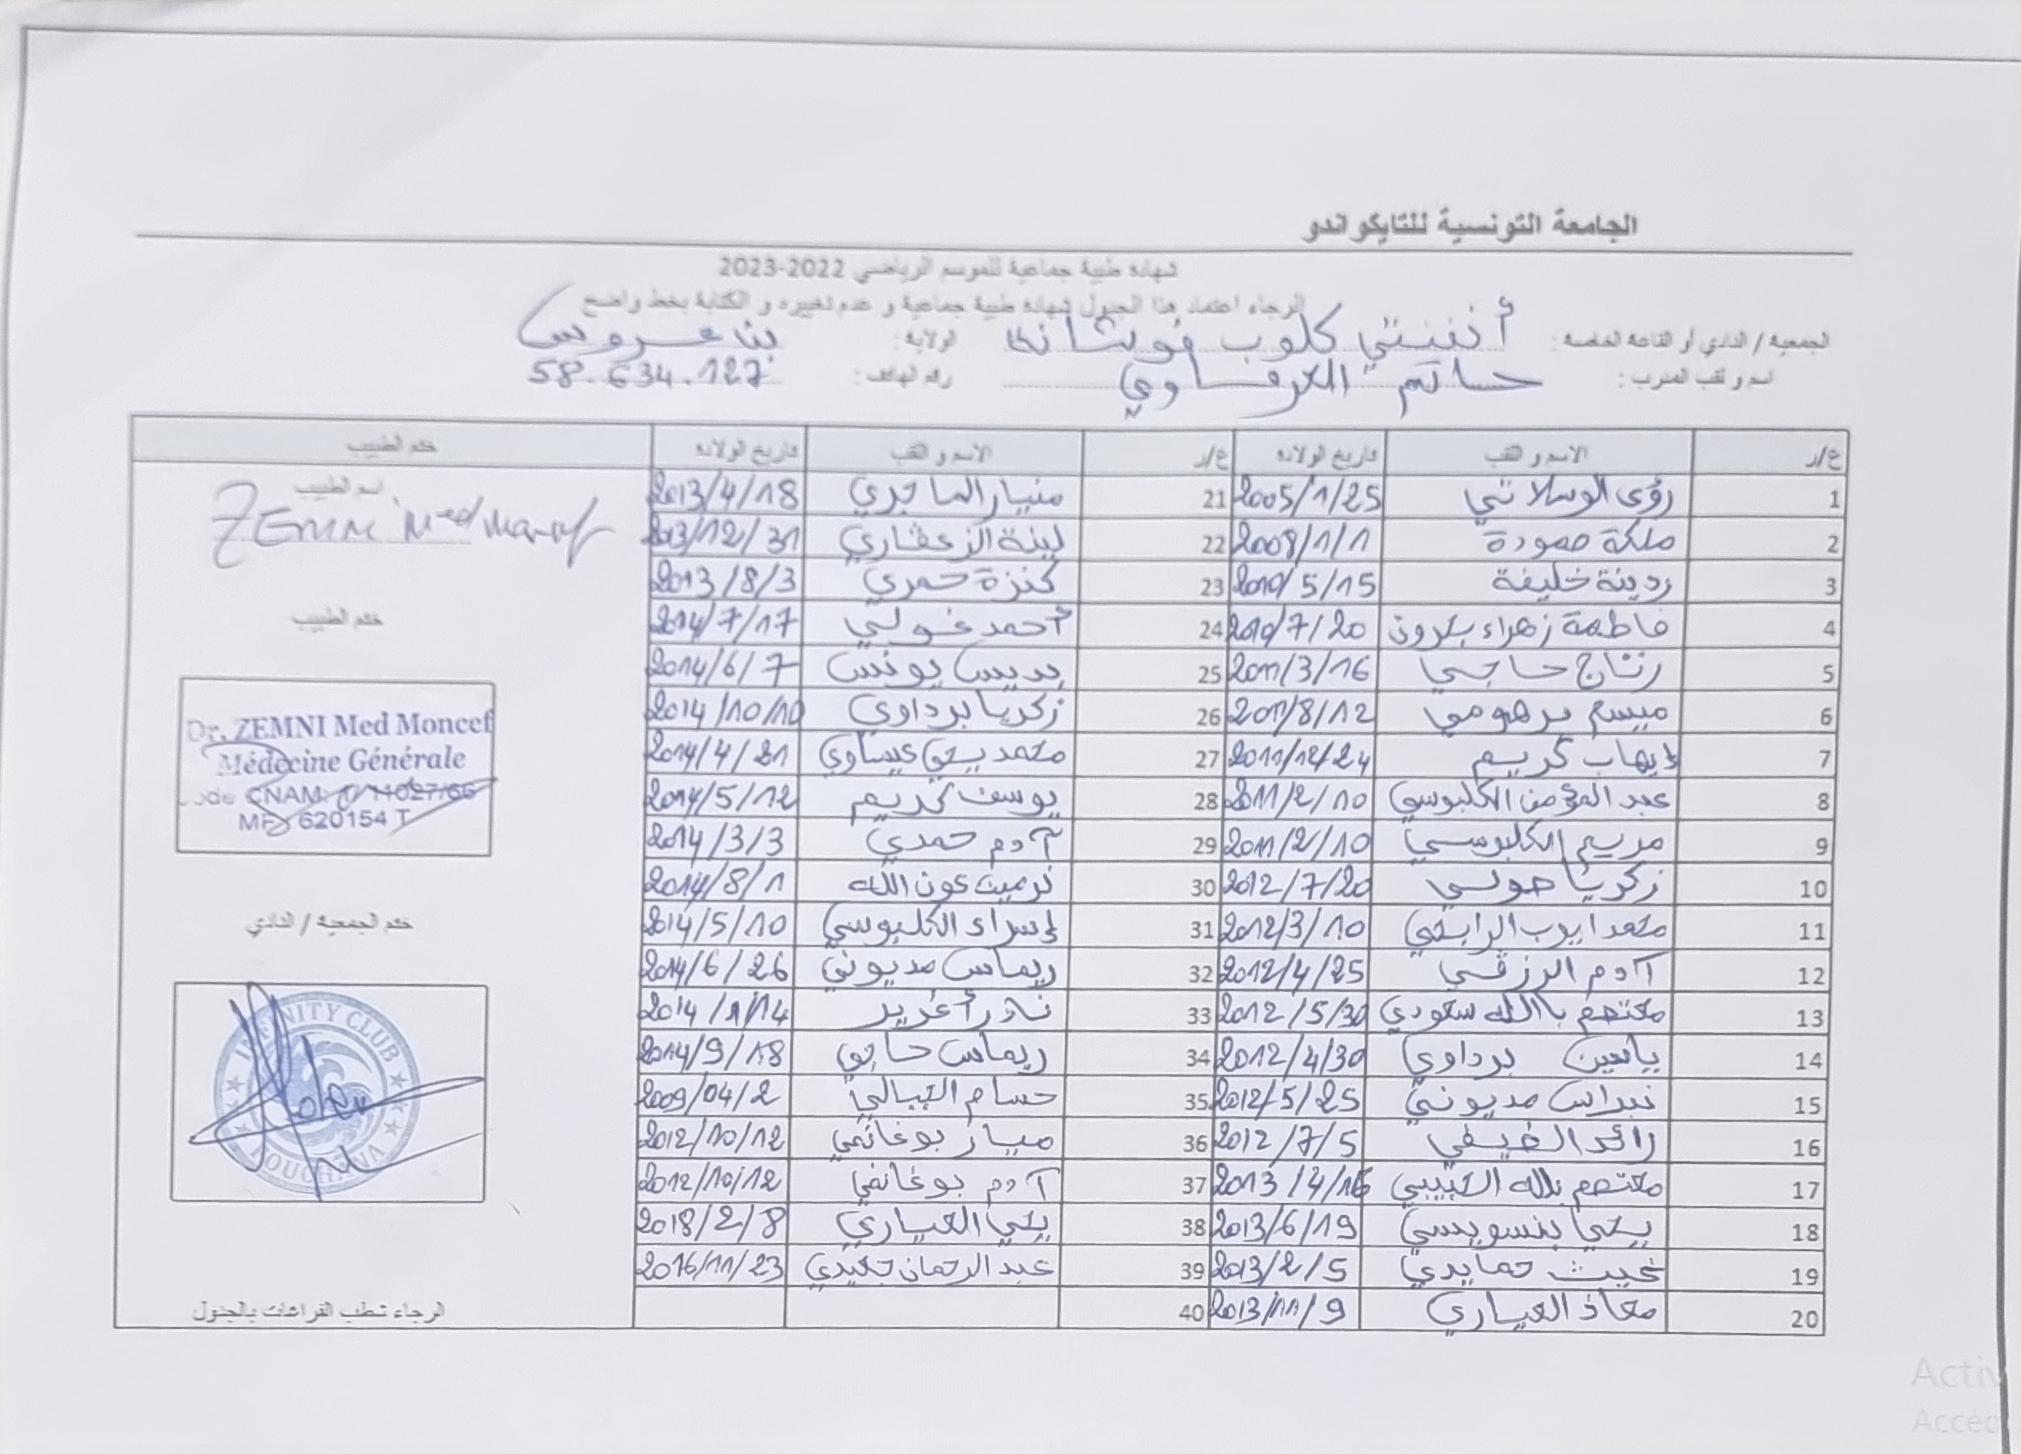 الجامعة التونسية للتايكواندو
شهادة طبية جماعية للموسم الرياضي 2022-2023
الرجاء اعتماد هذا الجدول شهادة طبية جماعية و عدم تغييره و الكتابة بخط واضح
الجمعية / النادي أو القاعة الخاصة : أنفنتي كلوب فوشانة الولاية : بن عروس
اسم و لقب المدرب : حاتم العرفاوي رقم الهاتف : 58.634.127
ع/ر الاسم و اللقب تاريخ الولادة ع/ر الاسم و اللقب تاريخ الولادة ختم الطبيب
1 رؤى الوسلاتي 2005/1/25 21 منيار الماجري 2013/4/18
2 ملكة حمودة 2008/1/1 22 لينة الزعفاري 2013/12/31
3 ردينة خليفة 2010/5/15 23 كنزة حمري 2013/8/3
4 فاطمة زهراء 2010/7/20 24 أحمد غولي 2014/7/17
5 رتاج حاجي 2011/3/16 25 يونس 2014/6/7
6 ميسم برهومي 2011/8/12 26 زكريا برداوي 2014/10/10
7 إيهاب كريم 2011/12/24 27 محمد يحي عيساوي 2014/4/21
8 عبد المؤمن الكلبوسي 2011/2/10 28 يوسف كريم 2014/5/12
9 مريم الكلبوسي 2011/2/10 29 آدم حمدي 2014/3/3
10 زكريا 2012/7/20 30 نرمين عون الله 2014/8/1
11 محمد ايوب الرابحي 2012/3/10 31 إسراء الكلبوسي 2014/5/10
12 آدم الرزقي 2012/4/25 32 ريماس مديوني 2014/6/26
13 معتصم باالله سعودي 2012/5/30 33 نادر 2014/1/14
14 ياسين برداوي 2012/4/30 34 ريماس حاجي 2014/9/18
15 نبراس مديوني 2012/5/25 35 حسام 2009/04/2
16 رائد الضيفي 2012/7/5 36 ميار بوغانمي 2012/10/12
17 معتصم بالله 2013/4/16 37 آدم بوغانمي 2012/10/12
18 يحيا بنسويسي 2013/6/19 38 يحي العياري 2018/2/8
19 غيث حمايدي 2013/2/5 39 عبد الرحمان جنيدي 2016/11/23
20 معاذ العياري 2013/11/9 40
اسم الطبيب
ZEMNI Med Moncef
ختم الطبيب
Dr. ZEMNI Med Moncef
Médecine Générale
Code CNAM: 1/11027/66
MF: 620154 T
ختم الجمعية / النادي
INFINITY CLUB
FOUCHANA
الرجاء شطب الفراغات بالجدول
Activ
Accéd